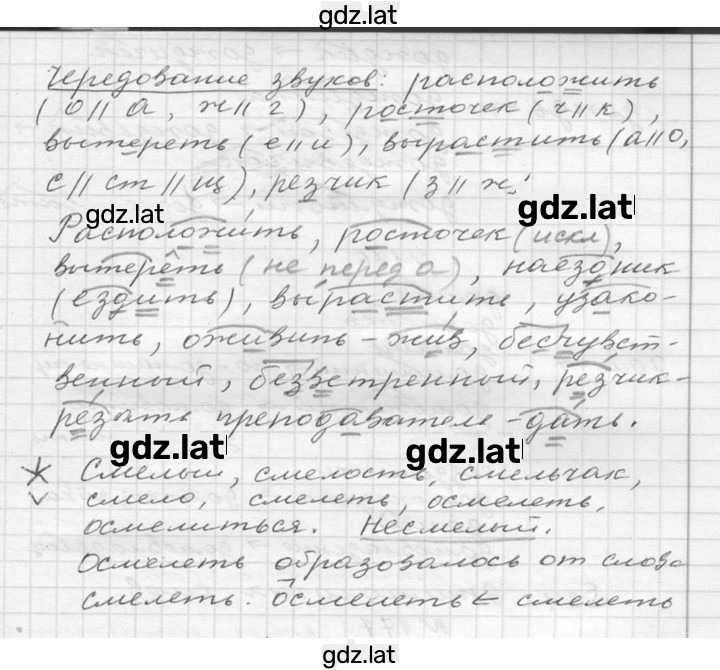 gdz.lat
Чередование звуков: расположить
(о//а, ж//г), росточек (ч//к),
вытереть (е//и), вырастить (а//о,
с//ст//щ), резчик (з//ж.
gdz.lat
gdz.lat
Расположить, росточек (искл),
вытереть (не перед а), наездник
(ездить), вырастить, узако-
нить, оживить - жив, бесчувст-
венный, безветренный, резчик-
резать преподаватель - дать.
gdz.lat
gdz.lat
Смелый, смелость, смельчак,
смело, смелеть, осмелеть,
осмелиться. Несмелый.
Осмелеть образовалось от слова
смелеть. Осмелеть ← смелеть
gdz.lat